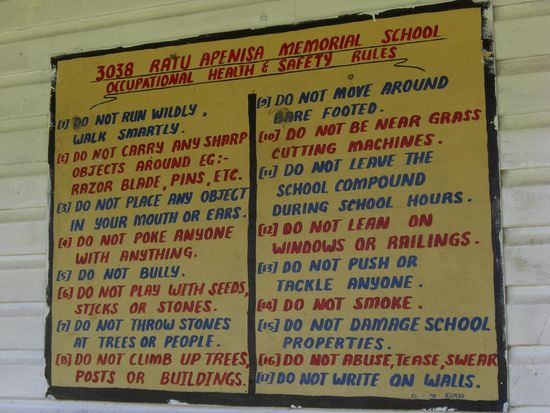 3038 RATU APENISA MEMORIAL SCHOOL
OCCUPATIONAL HEALTH & SAFETY RULES
[1] DO NOT RUN WILDLY,
WALK SMARTLY.
[2] DO NOT CARRY ANY SHARP
OBJECTS AROUND EG:-
RAZOR BLADE, PINS, ETC.
[3] DO NOT PLACE ANY OBJECT
IN YOUR MOUTH OR EARS.
[4] DO NOT POKE ANYONE
WITH ANYTHING.
[5] DO NOT BULLY.
[6] DO NOT PLAY WITH SEEDS,
STICKS OR STONES.
[7] DO NOT THROW STONES
AT TREES OR PEOPLE.
[8] DO NOT CLIMB UP TREES,
POSTS OR BUILDINGS.
[9] DO NOT MOVE AROUND
BARE FOOTED.
[10] DO NOT BE NEAR GRASS
CUTTING MACHINES.
[11] DO NOT LEAVE THE
SCHOOL COMPOUND
DURING SCHOOL HOURS.
[12] DO NOT LEAN ON
WINDOWS OR RAILINGS.
[13] DO NOT PUSH OR
TACKLE ANYONE.
[14] DO NOT SMOKE.
[15] DO NOT DAMAGE SCHOOL
PROPERTIES.
[16] DO NOT ABUSE, TEASE, SWEAR
[17] DO NOT WRITE ON WALLS.
KUMAR